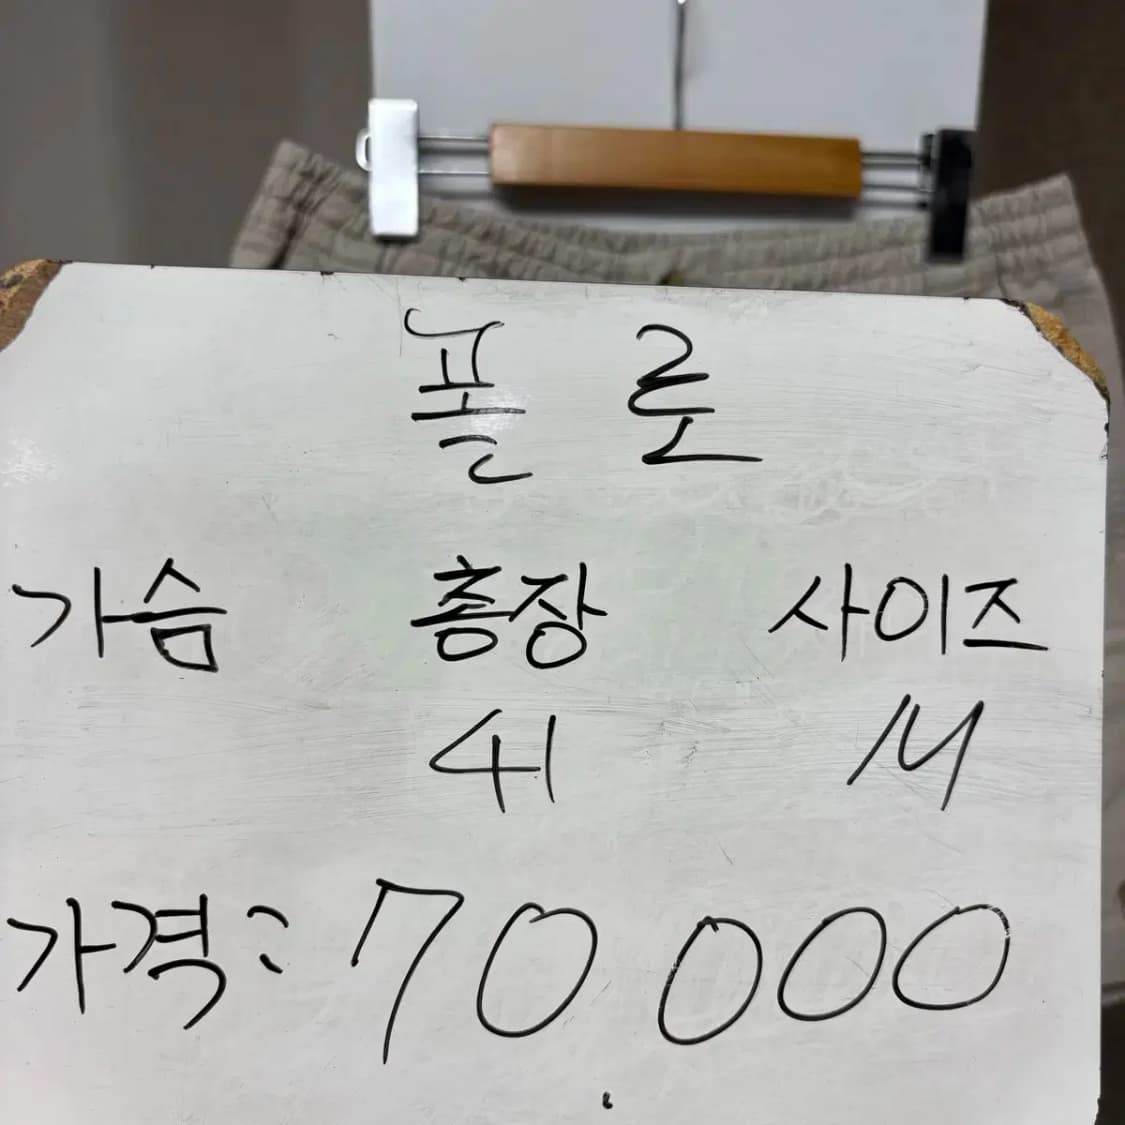 폴로
가슴 총장 사이즈
41 M
가격: 70.000